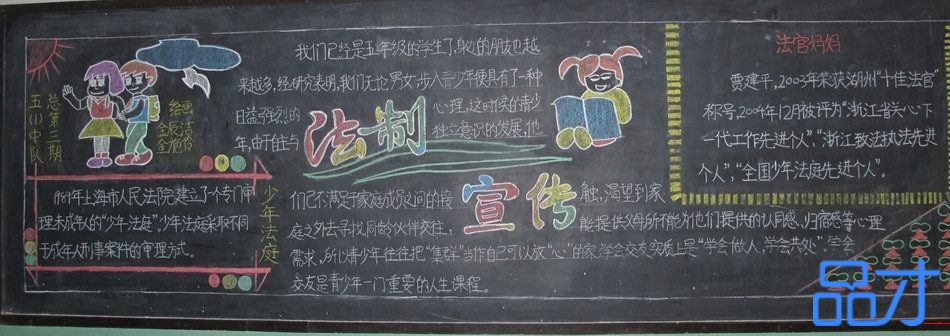 五(1)中队
总第三期
绘画
金辰洁
1984年上海市人民法院建立了个专门审
理未成人的“少年法庭”少年法庭采取不同
于成年人刑事案件的审理方式。
少年法庭
我们已经是五年级的学生了,身边的朋友也越
来越多,经研究表明,我们无论男女,步入青少年便具有了一种
日益强烈的
心理,这时候的青少
年,由于在与
独立意识的发展,他
法制
宣传
们已不满足于家庭成员之间的接
触,渴望到家
庭之外去寻找同龄伙伴交往,
能提供父母所不能为他们提供的认同感,归宿感等心理
需求,所以青少年往往把“集群”当作自己可以放“心”的家,学会交友实质上是“学会做人,学会共处”,学会
交友是青少年一门重要的人生课程。
法官妈妈
贾建平,2003年荣获湖州“十佳法官”
称号,2004年12月被评为“浙江省关心下
一代工作先进个人”,“浙江政法执法先进
个人”,“全国少年法庭先进个人”。
品才